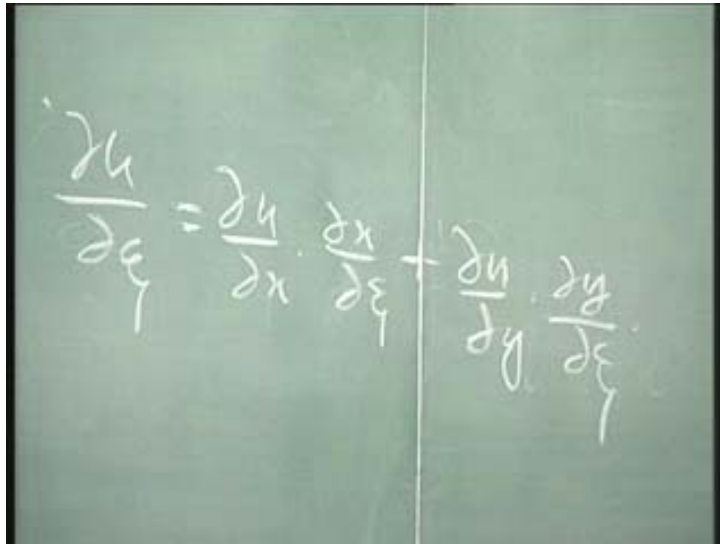 ∂u/∂ξ = ∂u/∂x · ∂x/∂ξ + ∂u/∂y · ∂y/∂ξ